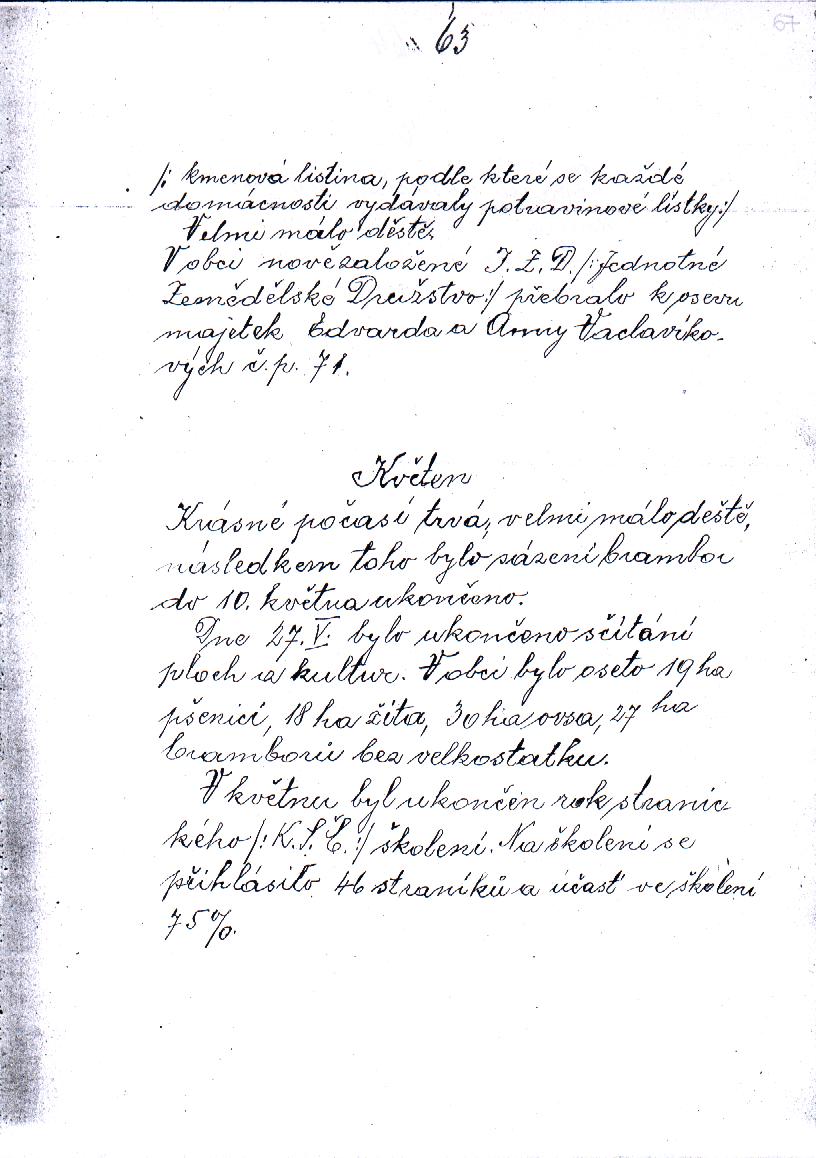 63
67
/: kmenová listina, podle které se každé
domácnosti vydávaly potravinové lístky:/
Velmi málo děště.
V obci nově založené J.Z.D. /:Jednotné
Zemědělské Družstvo:/ přebralo k osevu
majetek Edvarda a Anny Vaclavíko-
vých č.p. 71.
Květen
Krásné počasí trvá, velmi málo deště,
následkem toho bylo sázení brambor
do 10. května ukončeno.
Dne 27. V. bylo ukončeno sčítání
ploch a kultur. V obci bylo oseto 19 ha
pšenicí, 18 ha žita, 30 ha ovsa, 27 ha
bramborů bez velkostatku.
V květnu byl ukončen rok stranic
kého /: K.S.Č. :/ školení. Na školení se
přihlásilo 46 straníků a účast ve školení
75%.